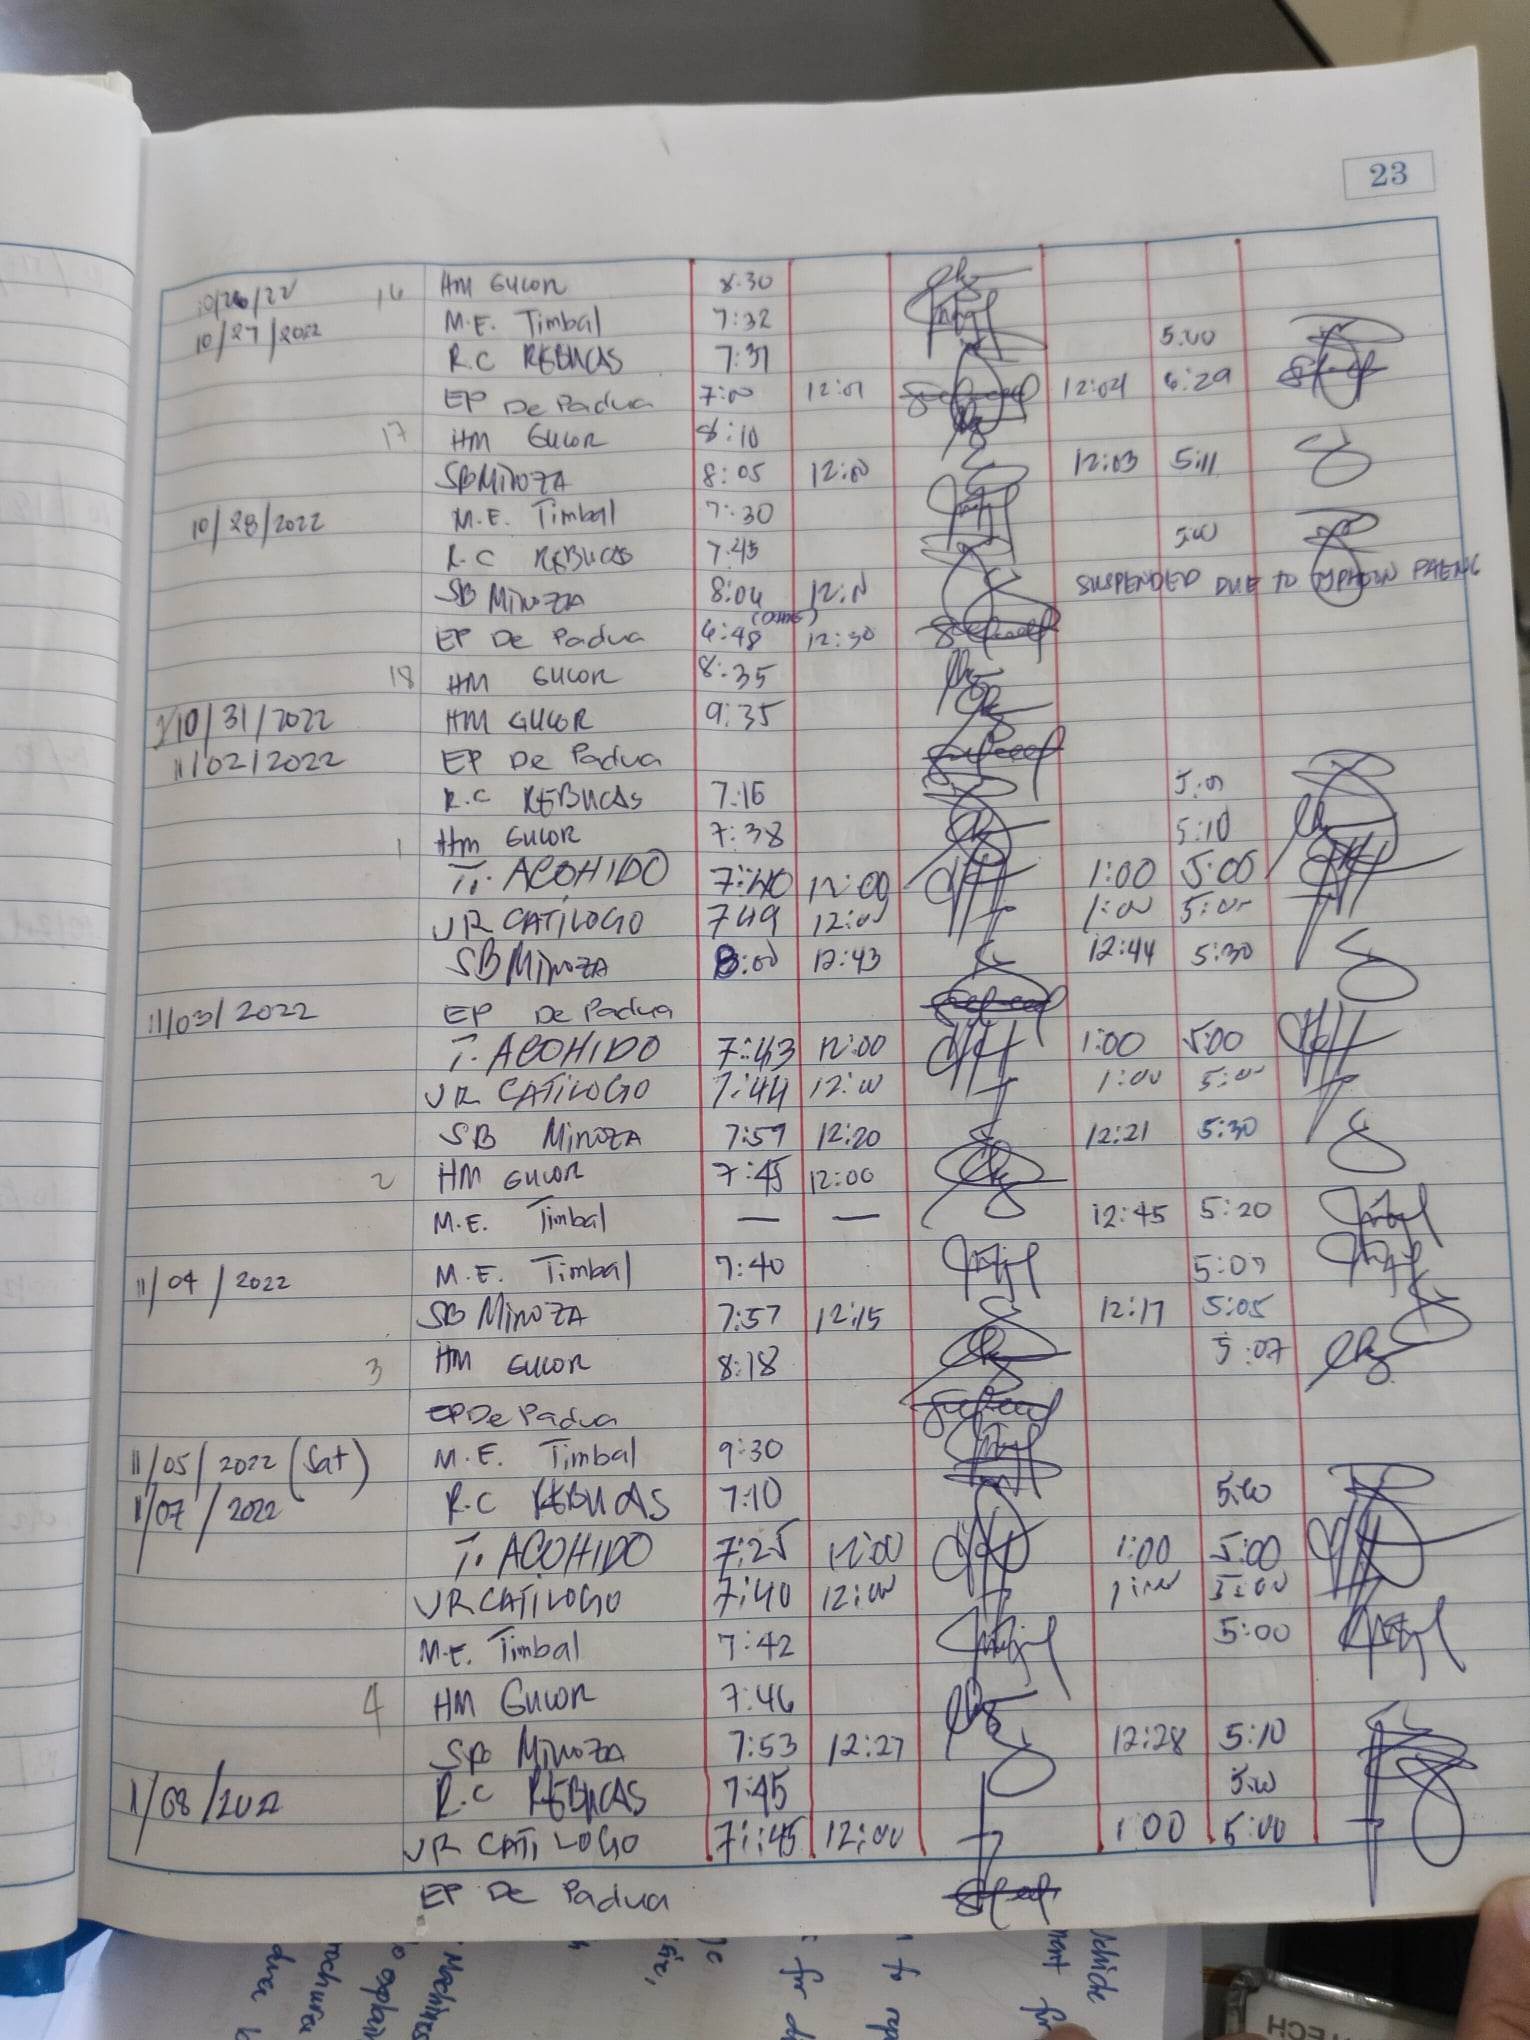 23
10/26/22 16 HM GUCOR 8:30
10/27/2022 M.E. Timbal 7:32
R.C REBUCAS 7:31 5:00
EP De Padua 7:00 12:01 12:04 6:29
17 HM GUCOR 8:10
SB MINOZA 8:05 12:00 12:03 5:11
10/28/2022 M.E. Timbal 7:30
R.C REBUCAS 7:45 5:00
SB MINOZA 8:04 12:11 SUSPENDED DUE TO TYPHOON PAENG
EP De Padua 6:48 12:30
18 HM GUCOR 8:35
10/31/2022 HM GUCOR 9:35
11/02/2022 EP De Padua
R.C REBUCAS 7:15 5:01
1 HM GUCOR 7:38 5:10
T. ACOHIDO 7:40 12:00 1:00 5:00
JR CATILOGO 749 12:00 1:00 5:00
SB MINOZA 8:00 12:43 12:44 5:30
11/03/2022 EP De Padua
T. ACOHIDO 7:43 12:00 1:00 5:00
JR CATILOGO 7:44 12:00 1:00 5:00
SB MINOZA 7:59 12:20 12:21 5:30
2 HM GUCOR 7:45 12:00
M.E. Timbal — — 12:45 5:20
11/04/2022 M.E. Timbal 7:40 5:07
SB MINOZA 7:57 12:15 12:17 5:05
3 HM GUCOR 8:18 5:07
EP De Padua
11/05/2022 (Sat) M.E. Timbal 9:30
11/07/2022 R.C REBUCAS 7:10 5:00
T. ACOHIDO 7:25 12:00 1:00 5:00
JR CATILOGO 7:40 12:00 1:00 5:00
M.E. Timbal 7:42 5:00
4 HM GUCOR 7:46
SB MINOZA 7:53 12:27 12:28 5:10
11/08/2022 R.C REBUCAS 7:45 5:00
JR CATILOGO 7:45 12:00 1:00 5:00
EP De Padua